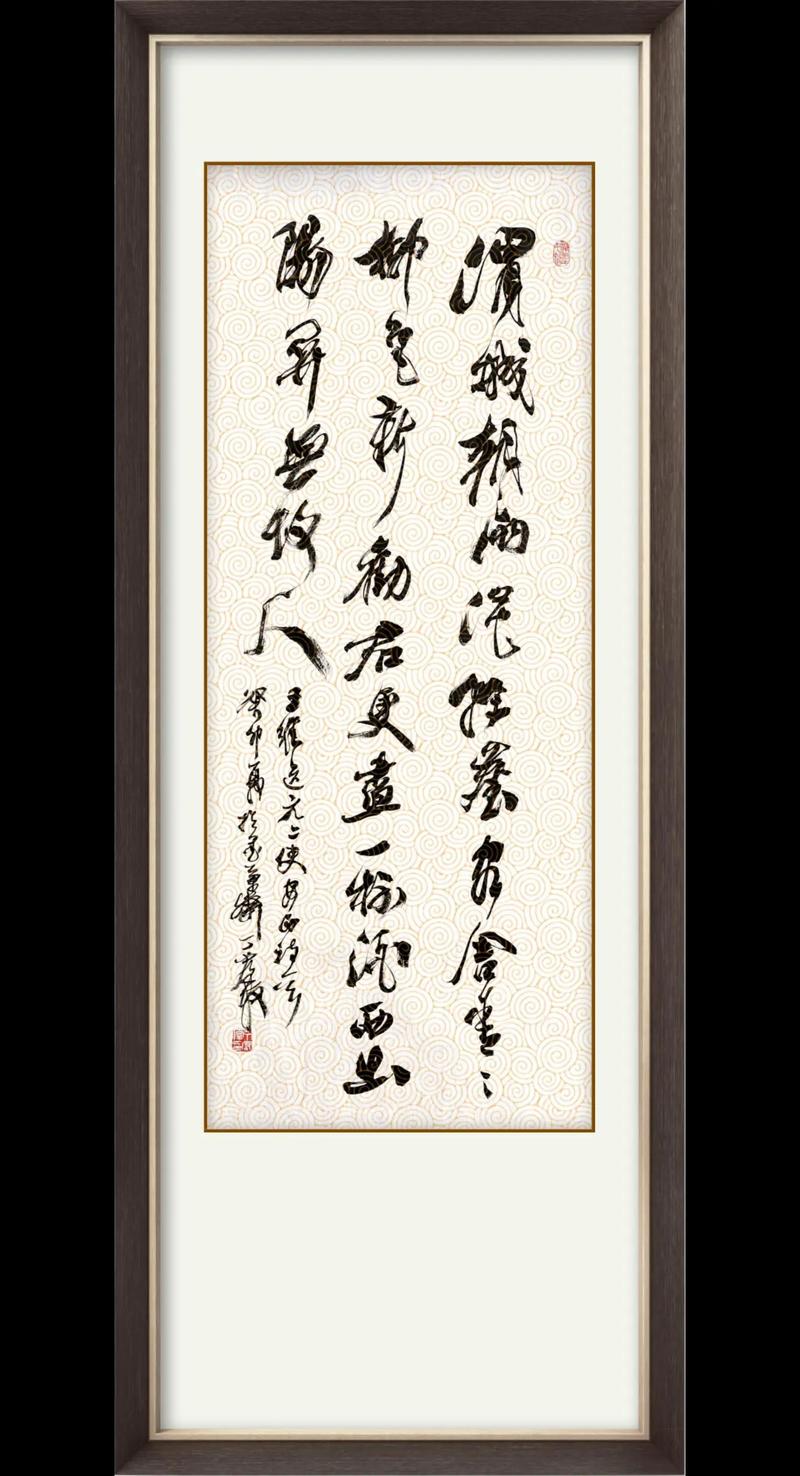 渭城朝雨浥輕塵客舍青々
柳色新勸君更盡一杯酒西出
陽關無故人
王維送元二使安西詩一首
癸卯夏於